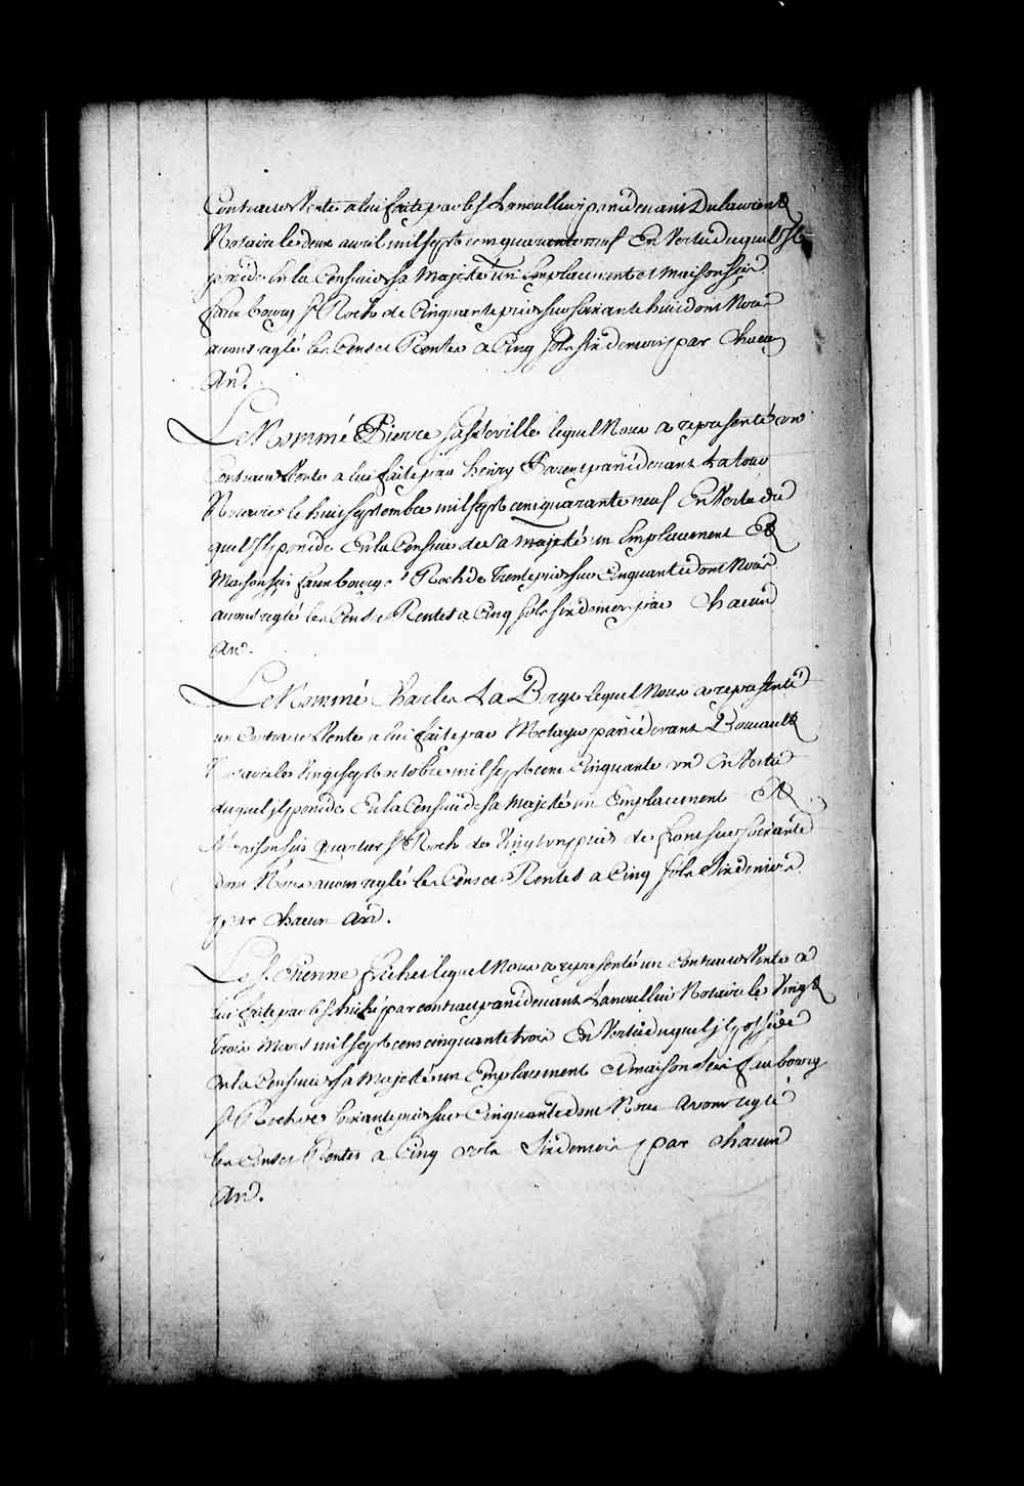 Contract de Vente a lui faite par le S. Lanoullier pardevant Dulaurent
Notaire le deux avril mil sept cent quarante neuf En Vertu duquel Jl
possede En la Censive de sa Majesté un Emplacement et Maison sis
faux bourg St Roch de Cinquante pieds sur soixante huit dont Nous
avons reglé les Cens et Rentes a Cinq sols six deniers par Chacun
An.
Le Nommé Pierre lequel Nous a representé un
Contract de Vente a lui faite par Henry Parent pardevant Latour
Notaire le huit septembre mil sept cent quarante neuf En Vertu du
quel Jl possede En la Censive de sa majesté un Emplacement Et
Maison sis faux bourg St Roch de trente pieds sur Cinquante dont Nous
avons reglé les Cens et Rentes a Cinq sols six deniers par Chacun
An.
Le Nommé Charles La Barge lequel Nous a representé
un Contract de Vente a lui faite par pardevant Boucault
Notaire le Vingt sept octobre mil sept cent Cinquante un En Vertu
duquel jl possede En la Censive de sa Majesté un Emplacement Et
Maison sis Quartier St Roch de Vingt un pieds de front sur soixante
dont Nous avons reglé les Cens et Rentes a Cinq sols Six deniers
par chacun an.
Le S. Etienne lequel Nous a representé un Contract de Vente a
lui faite par le S. par contract pardevant Lanoullier Notaire le Vingt
trois Mars mil sept cent cinquante trois En Vertu duquel jl possede
En la Censive de sa Majesté un Emplacement et maison sis faubourg
St Roch de soixante pieds sur Cinquante dont Nous avons reglé
les Cens et Rentes a Cinq sols Six deniers par chacun
An.